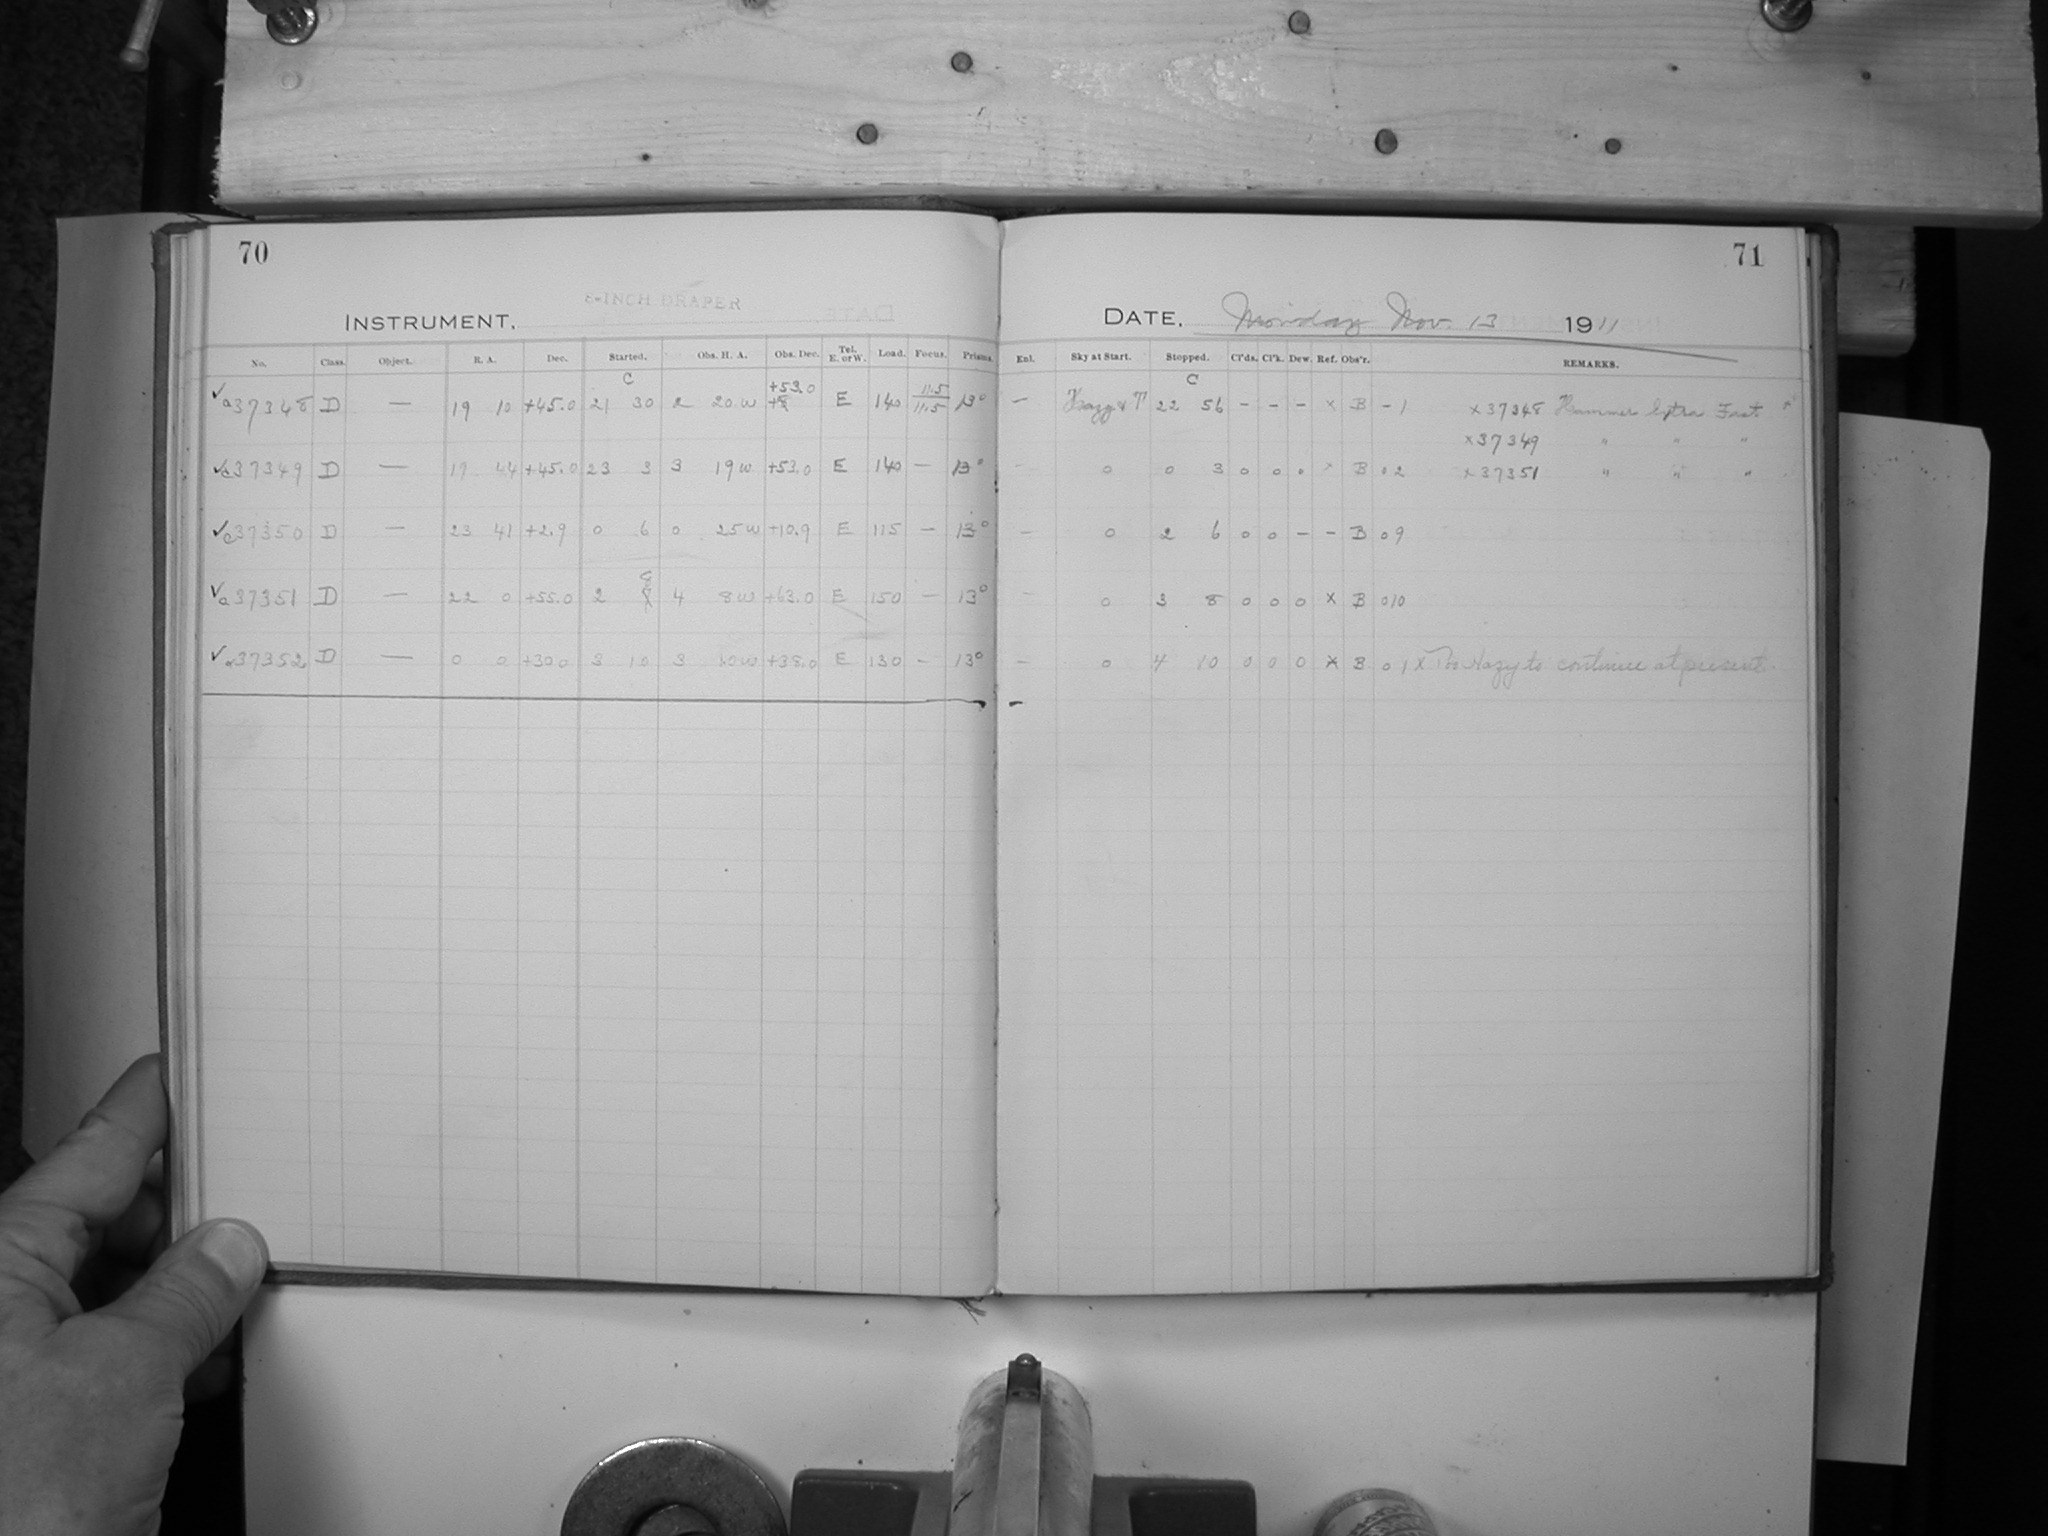 70
8-INCH DRAPER
INSTRUMENT,
No. Class. Object. R. A. Dec. Started. Obs. H. A. Obs. Dec. Tel. E. or W. Load. Focus. Prisms.
C +53.0 11.5
√ a37348 D — 19 10 +45.0 21 30 2 20 W +8 E 140 11.5 13°
√ c37349 D — 19 44 +45.0 23 3 3 19 W +53.0 E 140 — 13°
√ c37350 D — 23 41 +2.9 0 6 0 25 W +10.9 E 115 — 13°
√ a37351 D — 22 0 +55.0 2 8 4 8 W +63.0 E 150 — 13°
√ a37352 D — 0 0 +30.0 3 10 3 10 W +38.0 E 130 — 13°
71
DATE, Monday Nov. 13 1911
Enl. Sky at Start. Stopped. Cl'ds. Cl'k. Dew. Ref. Obs'r. REMARKS.
C
— Hazy & T 22 56 – – – × B – 1 × 37348 Hammer Extra Fast
× 37349 " " "
– 0 0 3 0 0 0 × B 0 2 × 37351 " " "
– 0 2 6 0 0 – – B 0 9
– 0 3 8 0 0 0 × B 0 10
– 0 4 10 0 0 0 × B 0 1 × Too Hazy to continue at present.